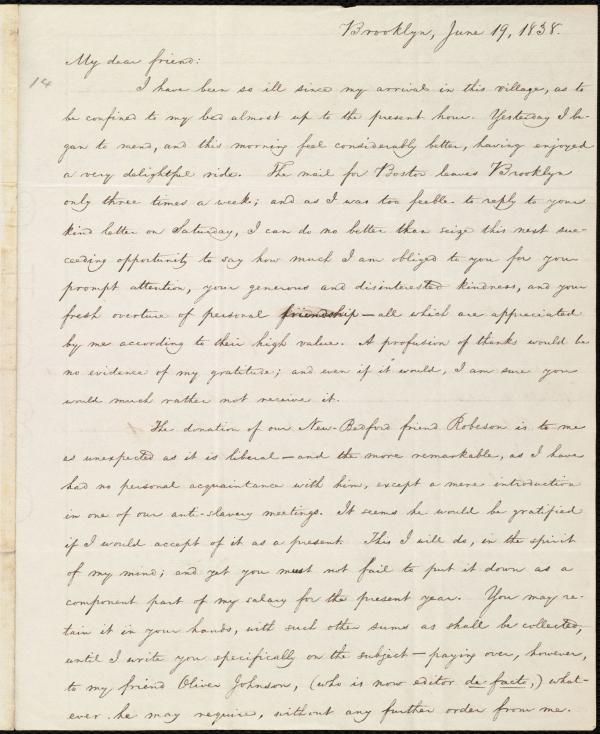 Brooklyn, June 19, 1838.
14
My dear friend:
I have been so ill since my arrival in this village, as to
be confined to my bed almost up to the present hour. Yesterday I be-
gan to mend, and this morning feel considerably better, having enjoyed
a very delightful ride. The mail for Boston leaves Brooklyn
only three times a week; and as I was too feeble to reply to your
kind letter on Saturday, I can do no better than seize this next suc-
ceeding opportunity to say how much I am obliged to you for your
prompt attention, your generous and disinterested kindness, and your
fresh overture of personal friendship—all which are appreciated
by me according to their high value. A profusion of thanks would be
no evidence of my gratitude; and even if it would, I am sure you
would much rather not receive it.
The donation of our New-Bedford friend Robeson is to me
as unexpected as it is liberal—and the more remarkable, as I have
had no personal acquaintance with him, except a mere introduction
in one of our anti-slavery meetings. It seems he would be gratified
if I would accept of it as a present. This I will do, in the spirit
of my mind; and yet you must not fail to put it down as a
component part of my salary for the present year. You may re-
tain it in your hands, with such other sums as shall be collected,
until I write you specifically on the subject—paying over, however,
to my friend Oliver Johnson, (who is now editor de facto,) what-
ever he may require, without any further order from me.